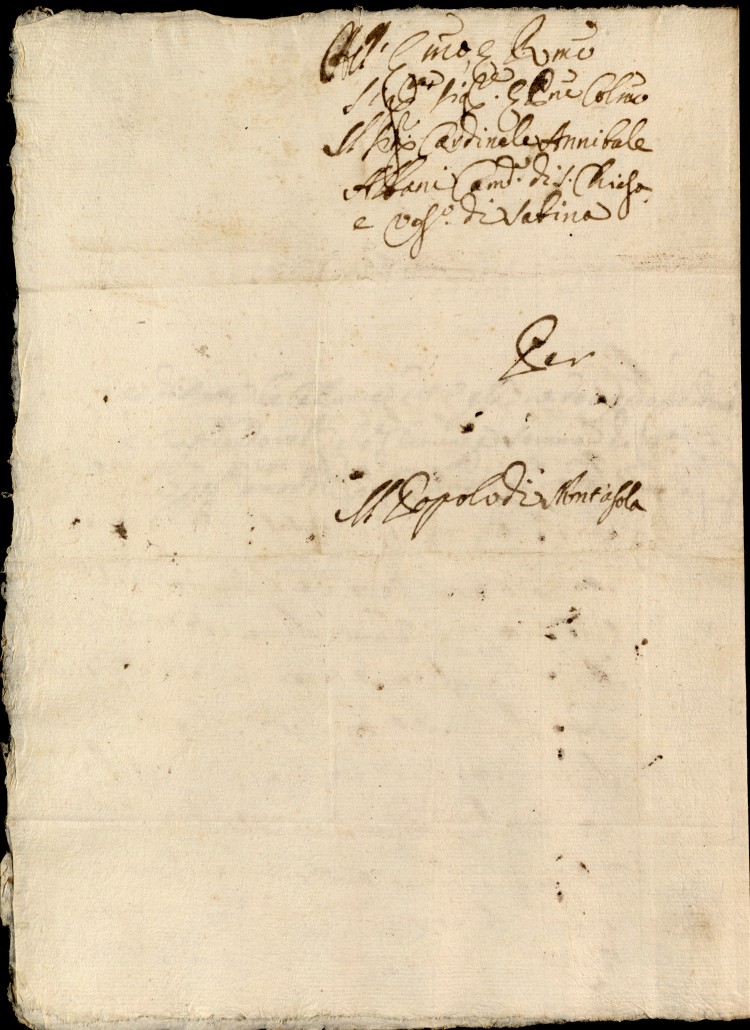 All' Emo, e Rmo
Sig.re e Pne Colmo
Il Sig.r Cardinale Annibale
Albani Cam.o di S. Chiesa
e Vesc.o di Sabina
Per
Il Popolo di Montasola